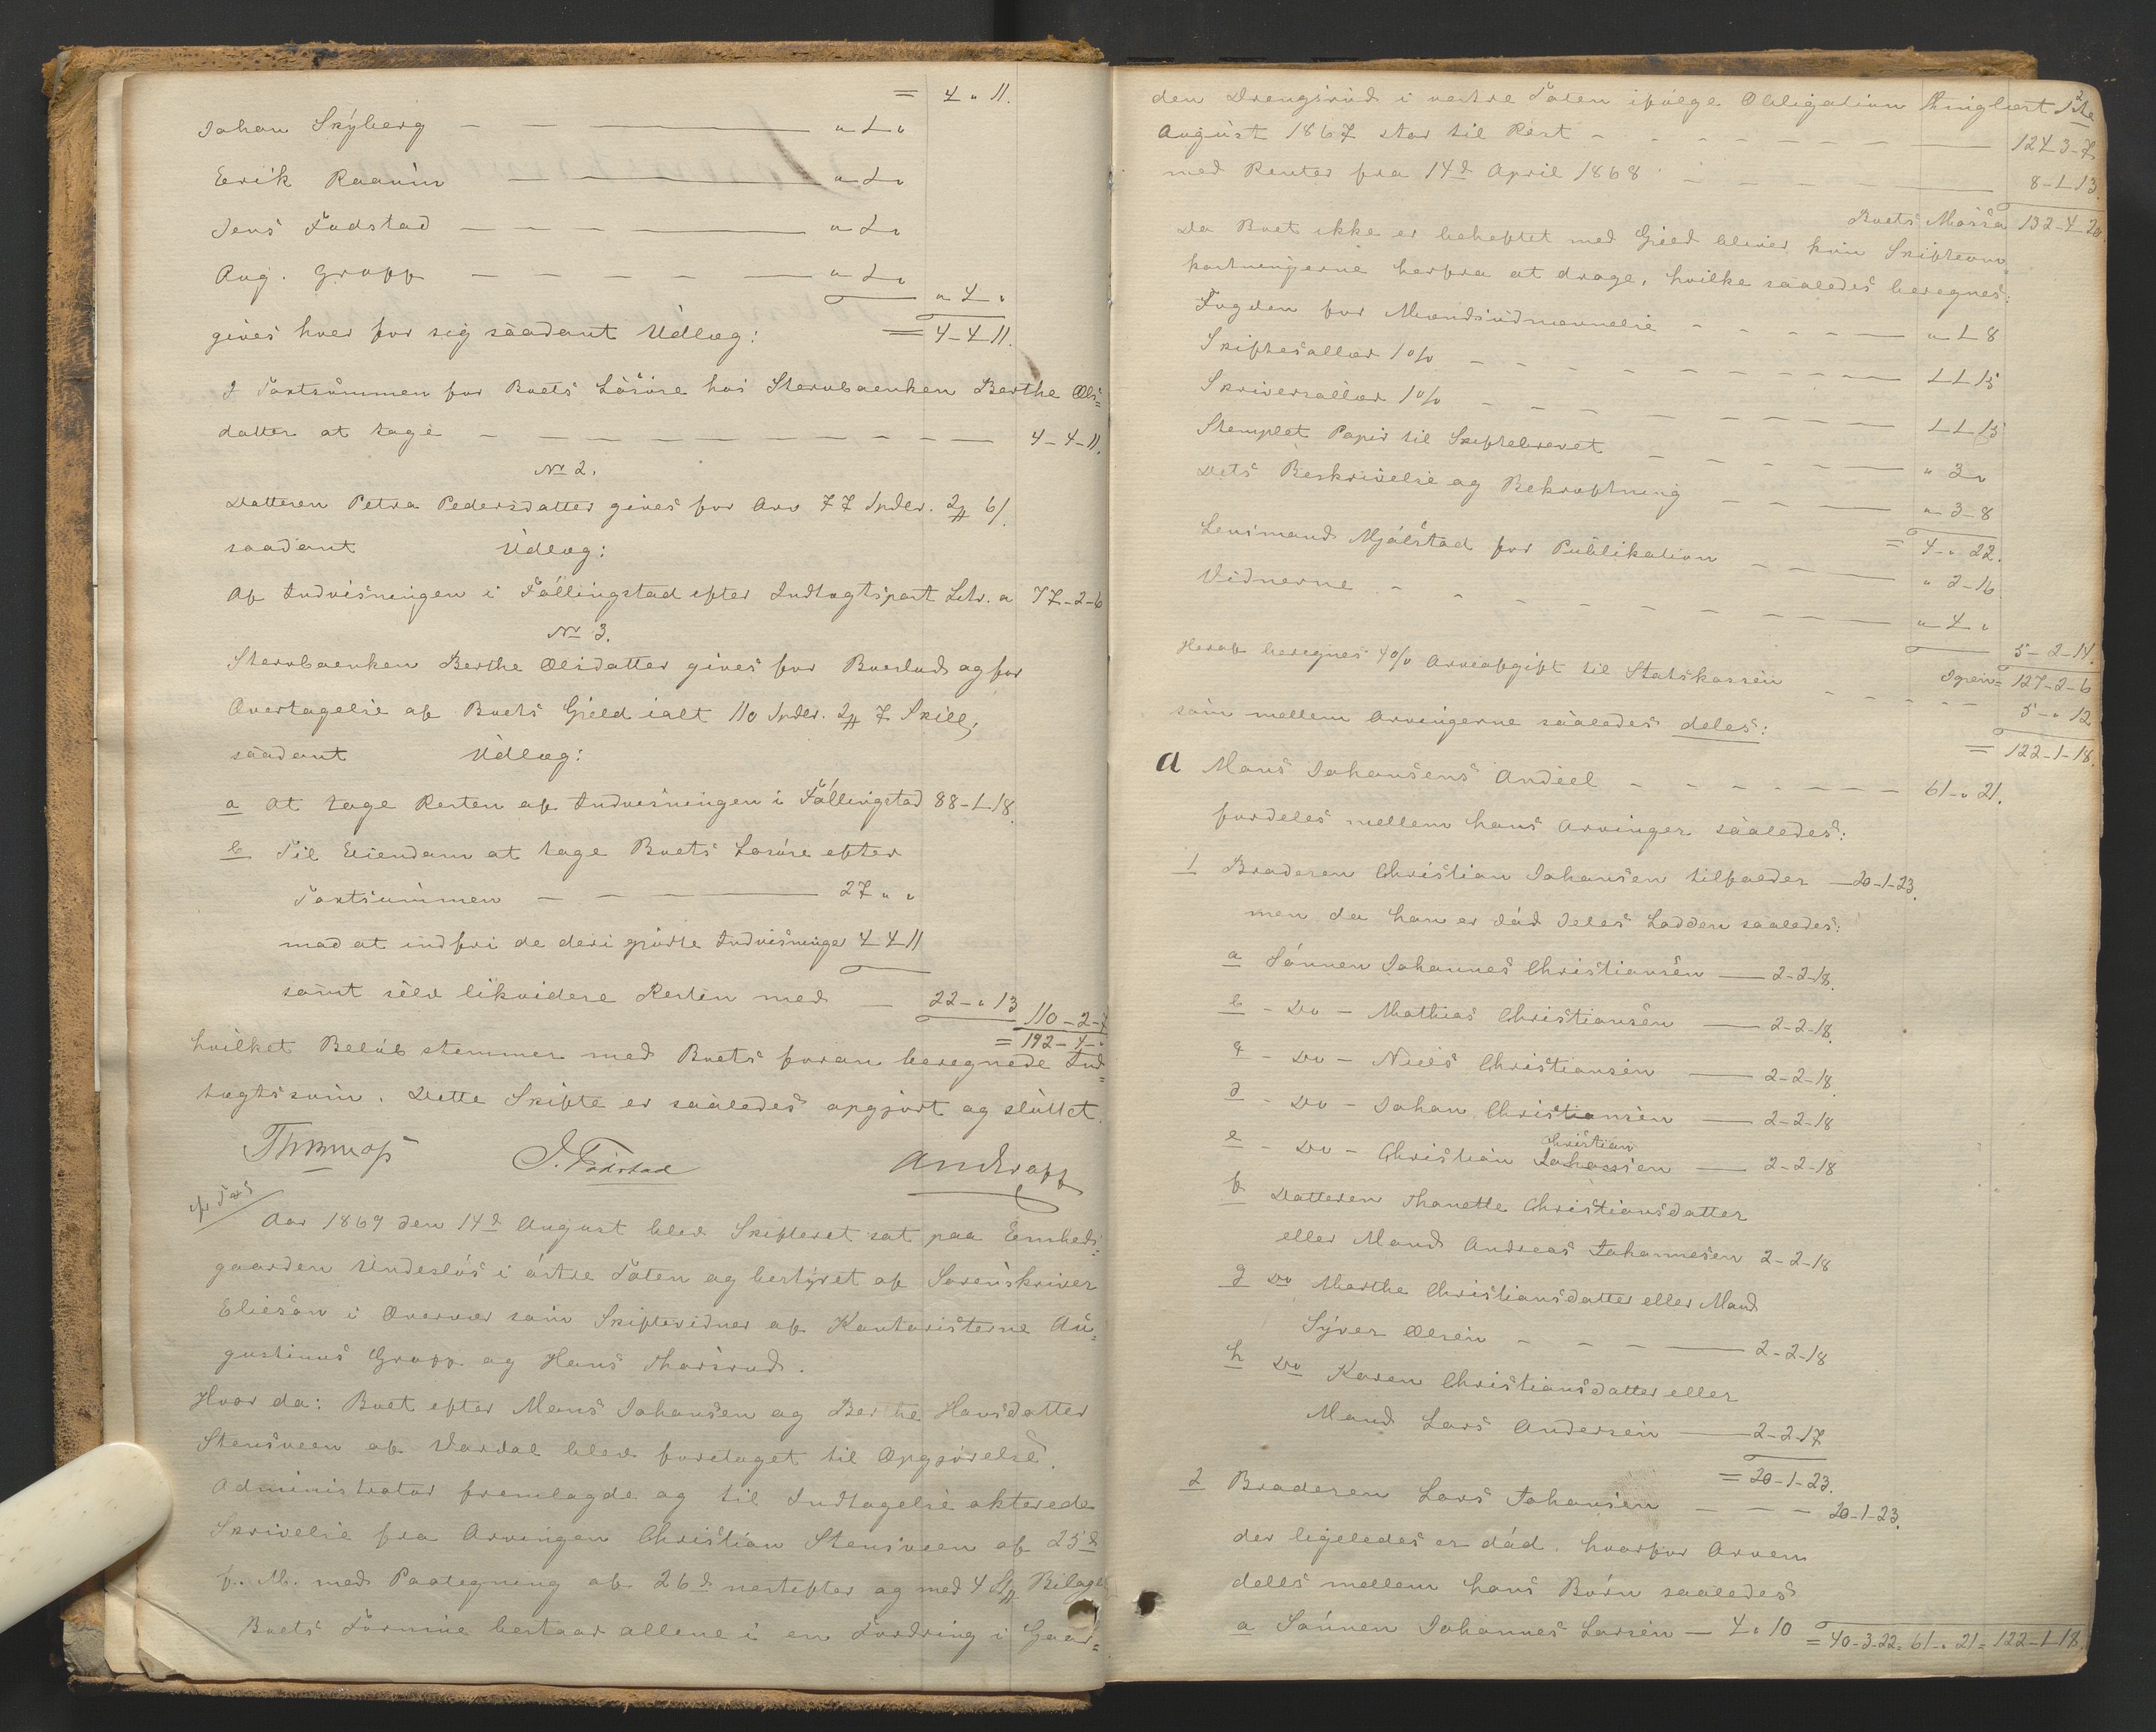 = 4 " 11.
Johan Skÿberg — — — " 1 "
Erik Raaum — — — " 1 "
Jens Fodstad — — — " 1 "
Aug. Gropp — — — — — " 1 "
" 4 "
gives hver for sig saadant Udlæg: = 4-4-11.
I Taxtsummen for Boets Løsøre hos Stervboenken Berthe Ols=
datter at tage — — — — — — — 4-4-11.
No 2.
Datteren Petra Pedersdatter gives for Arv 77 Spdlr. 2# 6/.
saadant Udlæg:
Af Indvisningen i Føllingstad efter Indtægtspost Litr. a 77-2-6
No 3.
Stervboenken Berthe Olsdatter gives for Boeslod og for
Overtagelse af Boets Gjeld ialt 110 Spdlr. 2# 7 Skill,
saadant Udlæg:
a At tage Resten af Indvisningen i Føllingstad 88-1-18.
b Til Eiendom at tage Boets Løsøre efter
Taxtsummen — — — 27 " "
mod at indfri de deri gjorte Indvisninger 4 4 11
samt selv likvidere Resten med — 22-"13 110-2-7
= 192-4-"
hvilket Beløb stemmer med Boets foran beregnede Ind=
tægtssum. Dette Skifte er saaledes opgjort og sluttet.
J. Fodstad AndGropp
Aar 1869 den 14d August blev Skifteret sat paa Embeds=
gaarden Undesløs i østre Toten og bestyret af Sorenskriver
Elieson i Overvær som Skiftevidner af Kontoristerne Au=
gustinus Gropp og Hans Thorsrud.
Hvor da: Boet efter Mons Johansen og Berthe Hansdatter
Stensveen af Vardal blev foretaget til Opgjørelse.
Administrator fremlagde og til Indtagelse akterede
Skrivelse fra Arvingen Christian Stensveen af 25d
f. M. med Paategning af 26d nestefter og med 4 St# Bilage.
Boets Formue bestaar allene i en Fordring i Gaar=
den Drengsrud i vestre Toten ifølge Obligation thinglæst 12te
August 1867 stor til Rest — — — — — — 124-3-7
med Renter fra 14d April 1868 — — — — 8-1-13
Boets Massa 132-4-20
Da Boet ikke er beheftet med Gjeld bliver kun Skifteom=
kostningerne herfra at drage, hvilke saaledes beregnes:
Fogden for Mændsudnævnelse — — — — " 1 8
Skiftesallær 1% — — — — — — — 1 1 15
Skriversallær 1% — — — — — — — 1 1 15
Stemplet Papir til Skiftebrevet — — — — " 3 "
Dets Beskrivelse og Bekræftning — — — "-3-8
= 4-" 22.
Lensmand Mjølstad for Publikation — — — " 2-16
Vidnerne — — — — — — — — " 4 "
5-2-14.
Igjen = 127-2-6
Heraf beregnes 4% Arveafgift til Statskassen — — — — 5-" 12
= 122-1-18.
som mellem Arvingerne saaledes deles:
A Mons Johansens Andeel — — — — — — 61-" 21.
fordeles mellem hans Arvinger saaledes:
1 Broderen Christian Johansen tilfalder — 20-1-23.
men da han er død deles Lodden saaledes:
a Sønnen Johannes Christiansen — 2-2-18.
b - Do - Mathias Christiansen — 2-2-18.
c - Do - Niels Christiansen — 2-2-18
d - Do - Johan Christiansen — 2-2-18
Christian
e - Do - Christian Johansen — 2-2-18
f Datteren Thonette Christiansdatter
eller Mand Andreas Johannesen 2-2-18
g Do Marthe Christiansdatter eller Mand
Syver Olsen — — — 2-2-18
h Do Karen Christiansdatter eller
Mand Lars Andersen — 2-2-17
= 20-1-23.
2 Broderen Lars Johansen — — — 20-1-23.
der ligeledes er død, hvorfor Arven
deles mellem hans Børn saaledes
a Sønnen Johannes Larsen — 4 " 10 = 40-3-22 = 61-" 21 = 122-1-18.